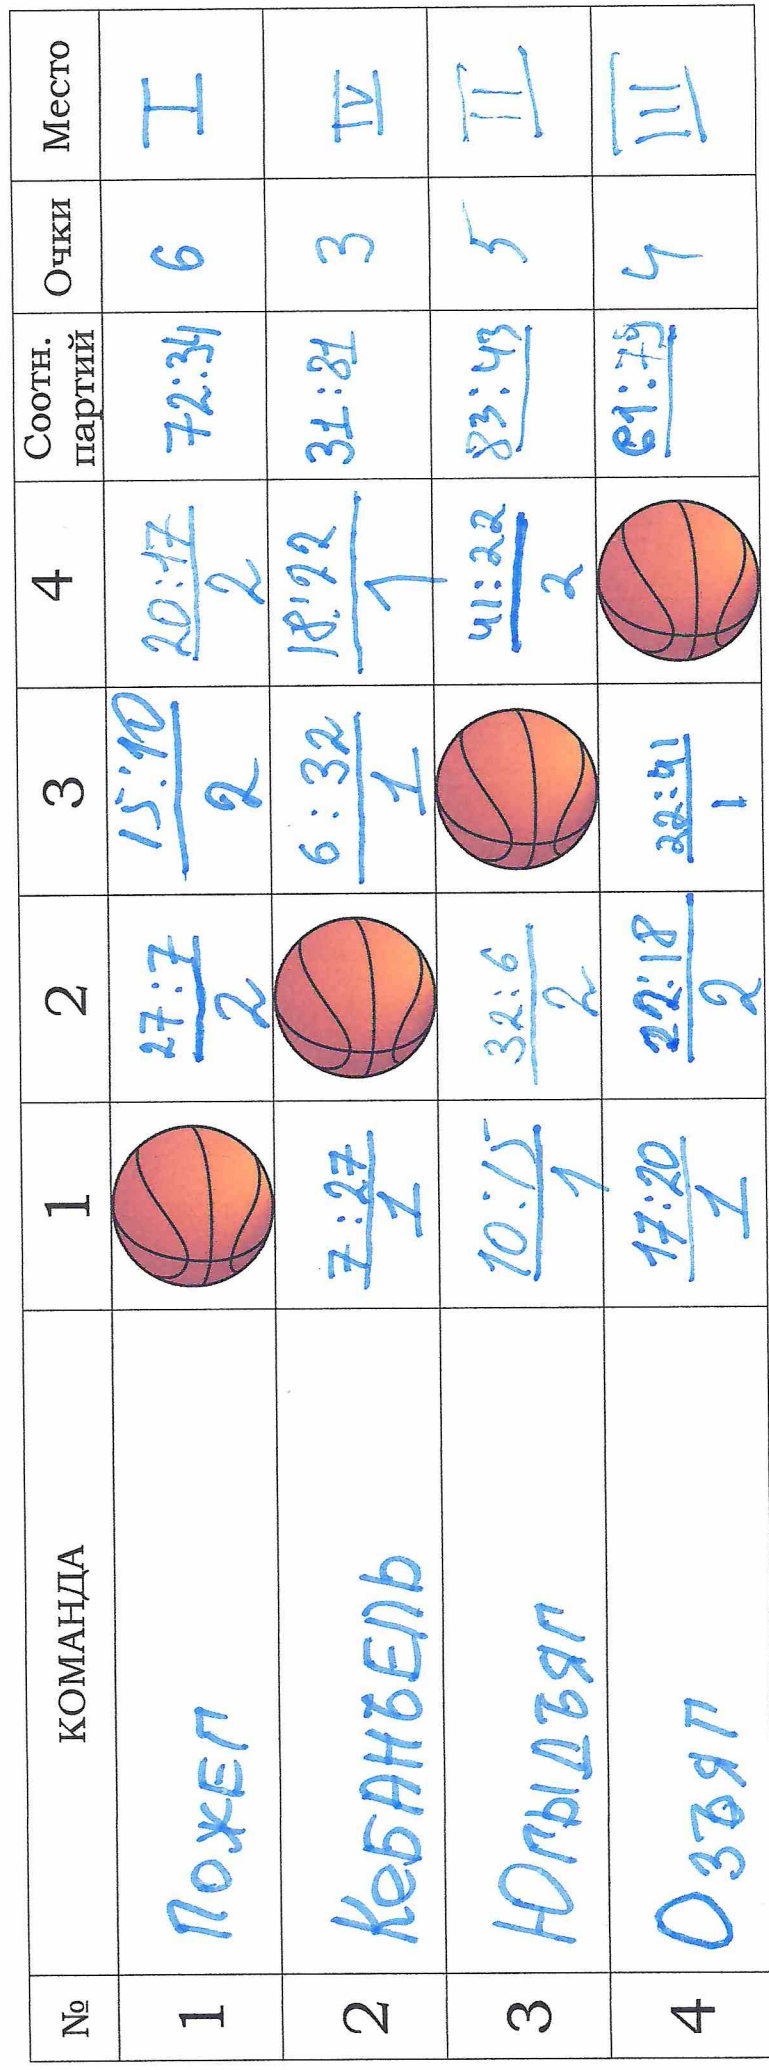 № КОМАНДА 1 2 3 4 Соотн. партий Очки Место
1 ПОЖЕГ 27:7 2 15:10 2 20:17 2 72:34 6 I
2 КЕБАНЪЕЛЬ 7:27 1 6:32 1 18:22 1 31:81 3 IV
3 ЮГЫДЪЯГ 10:15 1 32:6 2 41:22 2 83:43 5 II
4 ОЗЪЯГ 17:20 1 22:18 2 22:41 1 61:79 4 III